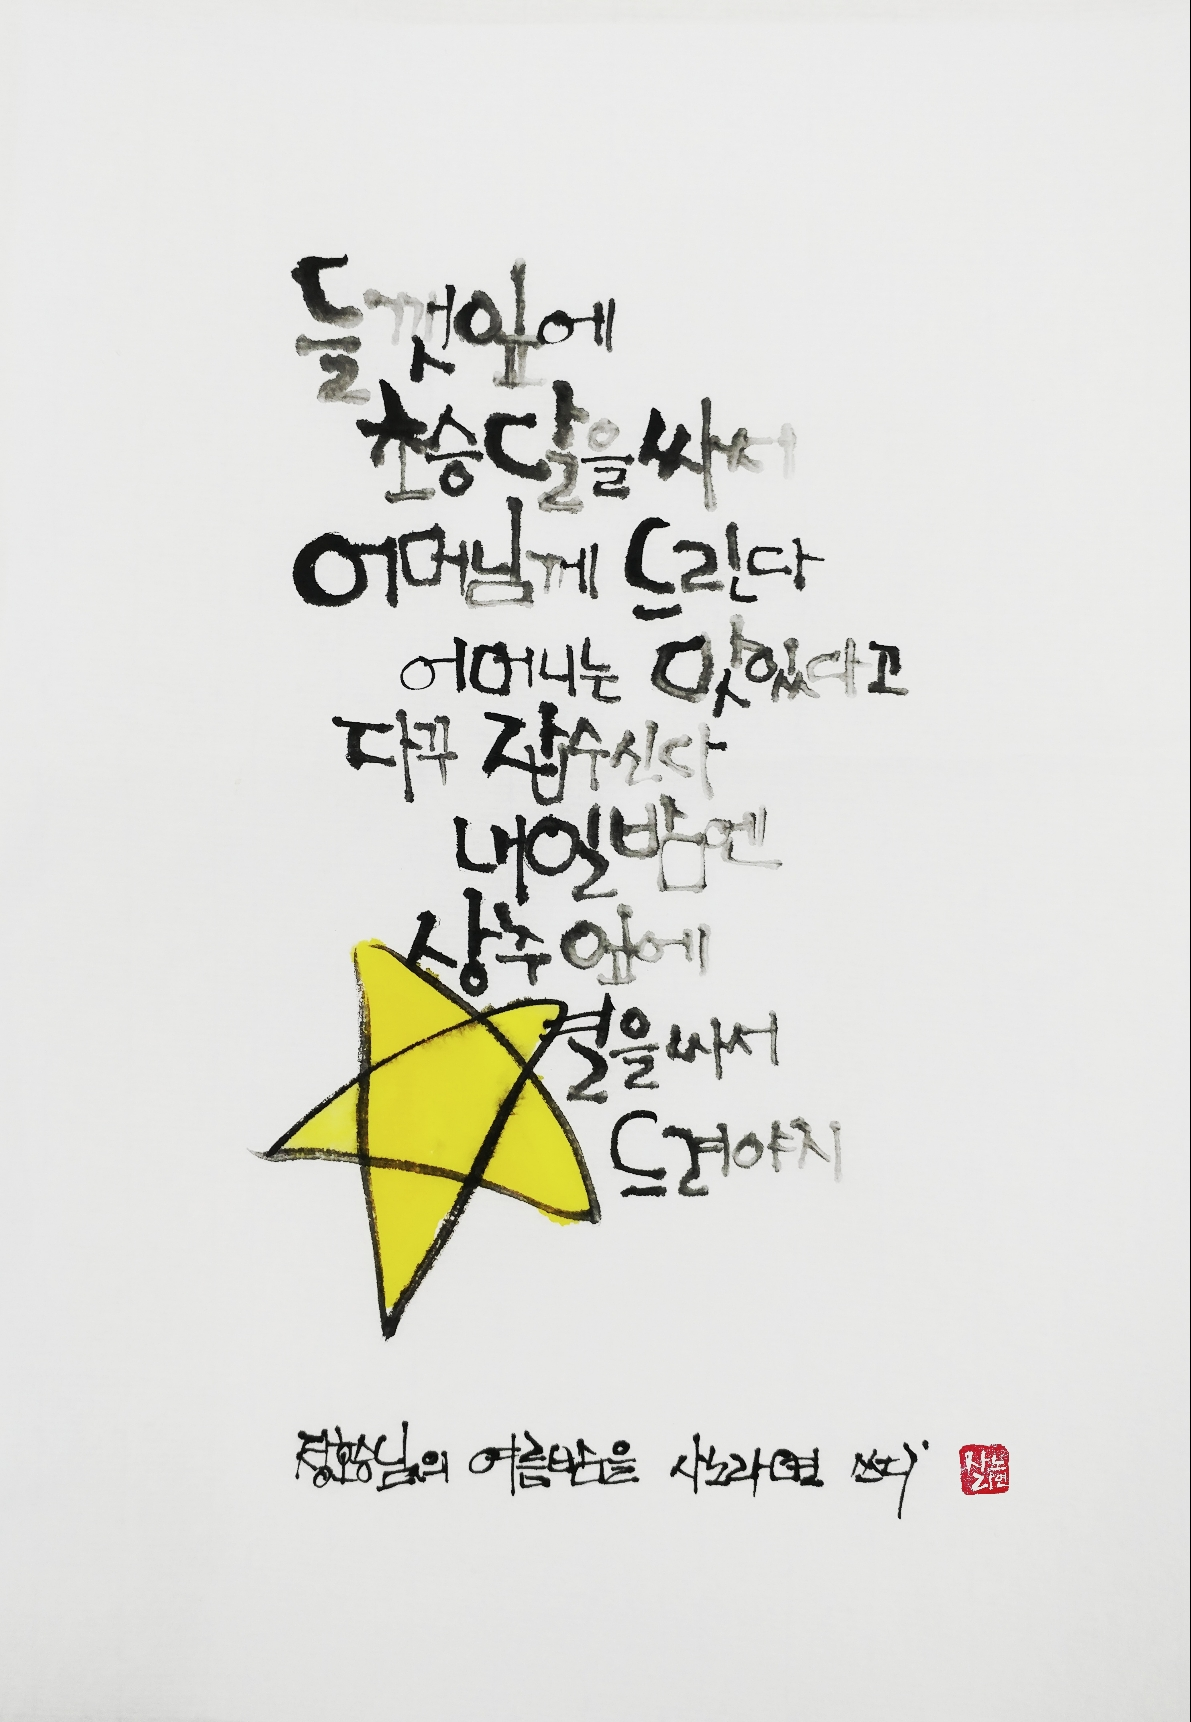 들깻잎에
초승달을 싸서
어머님께 드린다
어머니는 맛있다고
자꾸 잡수신다
내일 밤엔
상추 잎에
별을 싸서
드려야지
정호승님의 여름밤을 사노라면 쓰다
사노
라면